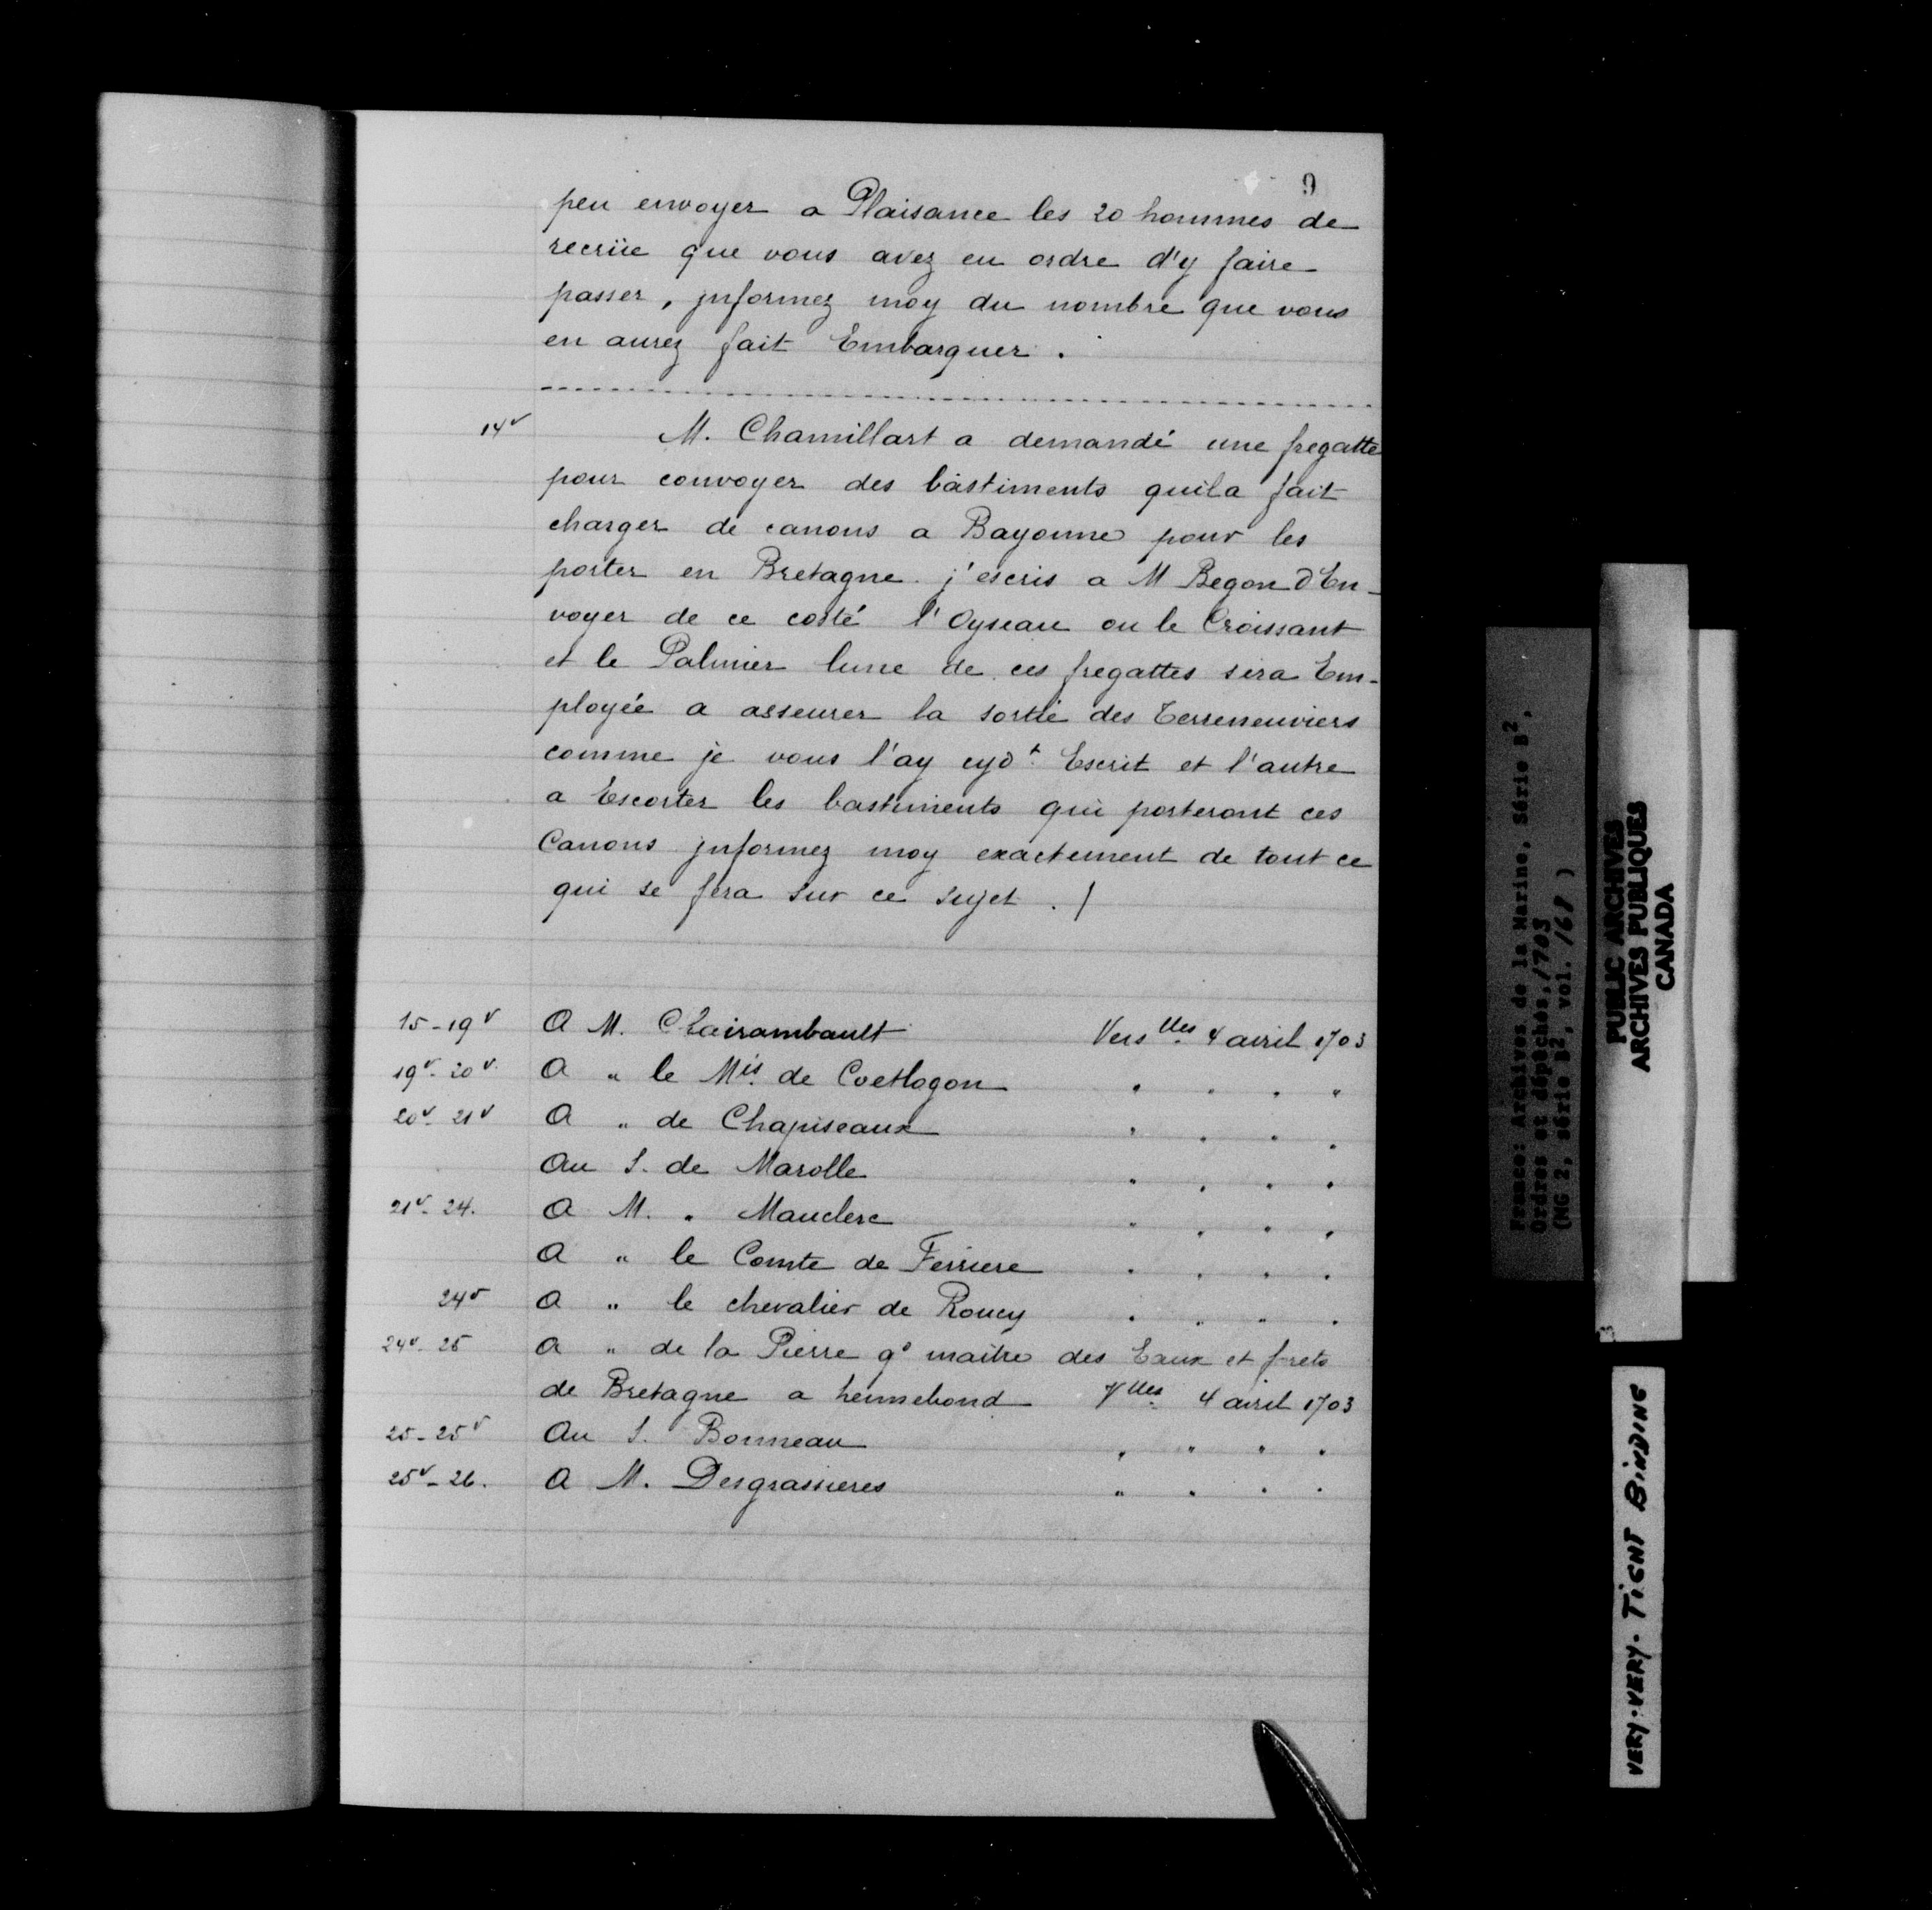 9
peu envoyer a Plaisance les 20 hommes de
recrüe que vous avez eu ordre d'y faire
passer, jnformez moy du nombre que vous
en aurez fait Embarquer.
14v M. Chamillart a demandé une fregatte
pour convoyer des bastiments quila fait
charger de canons a Bayonne pour les
porter en Bretagne. j'escris a M Begon d'En-
voyer de ce costé l'Oyseau ou le Croissant
et le Palmier lune de ces fregattes sera Em-
ployée a asseurer la sortie des Terreneuviers
comme je vous l'ay cydt Escrit et l'autre
a Escorter les bastiments qui porteront ces
Canons jnformez moy exactement de tout ce
qui se fera sur ce sujet ./
15-19v A M. Clairambault Verslles 4 avril 1703
19v-20v A " le Mis de Coetlogon " " " "
20v-21v A " de Chapiseaux " " " "
Au S. de Marolle " " " "
21v-24. A M. " Mauclerc " " " "
A " le Comte de Ferriere " " " "
24v A " le chevalier de Roucy " " " "
24v-25 A " de la Pierre gd maitre des Eaux et frets
de Bretagne a hennebond Vlles 4 avril 1703
25-25v Au S. Bonneau " " " "
25v-26. A M. Desgrassieres " " " "
France: Archives de la Marine, Série B2,
Ordres et dépêches, 1703
(MG 2, série B2, vol. 168)
PUBLIC ARCHIVES
ARCHIVES PUBLIQUES
CANADA
VERY-VERY-TIGHT BINDING